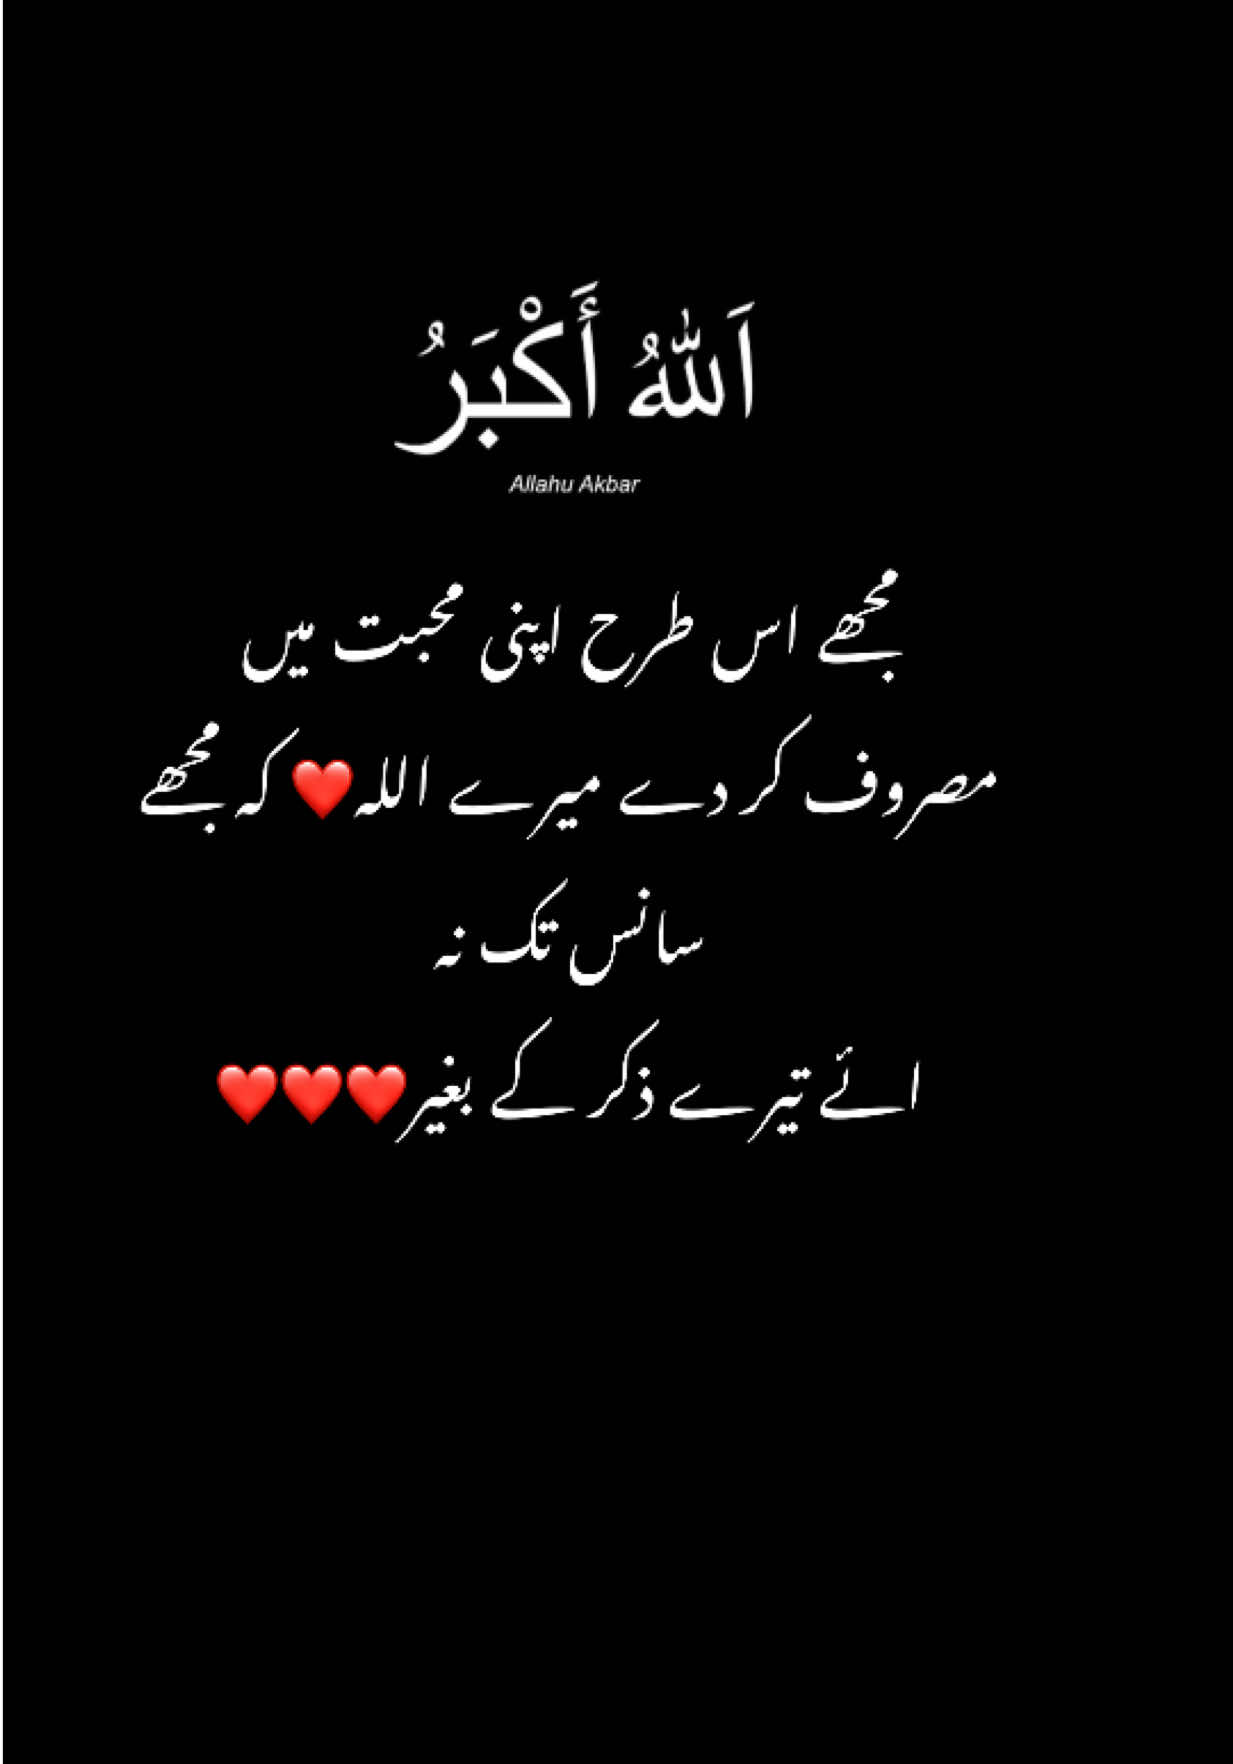 اَللّٰهُ أَكْبَرُ
Allahu Akbar
مجھے اس طرح اپنی محبت میں
مصروف کر دے میرے اللہ❤️ کہ مجھے
سانس تک نہ
ائے تیرے ذکر کے بغیر❤️❤️❤️